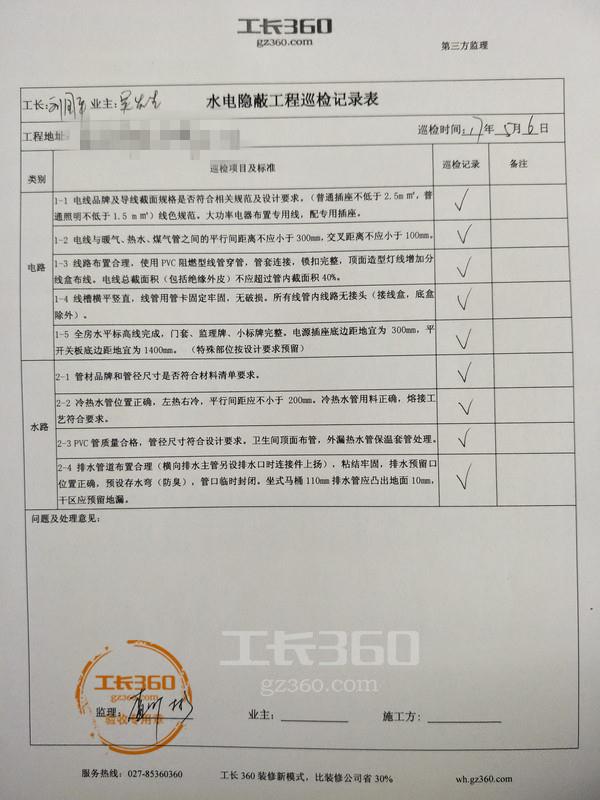 工长360
gz360.com
第三方监理
工长: 业主: 水电隐蔽工程巡检记录表
工程地址: 巡检时间: 17年 5月 6日
类别 巡检项目及标准 巡检记录 备注
电路
1-1 电线品牌及导线截面规格是否符合相关规范及设计要求。（普通插座不低于 2.5m㎡，普
通照明不低于 1.5 m㎡）线色规范。大功率电器布置专用线，配专用插座。
1-2 电线与暖气、热水、煤气管之间的平行间距离不应小于300mm，交叉距离不应小于100mm。
1-3 线路布置合理，使用 PVC 阻燃型线管穿管，管套连接，锁扣完整，顶面造型灯线增加分
线盒布线。电线总截面积（包括绝缘外皮）不应超过管内截面积 40%。
1-4 线槽横平竖直，线管用管卡固定牢固，无破损。所有线管内线路无接头（接线盒，底盒
除外）。
1-5 全房水平标高线完成，门套、监理牌、小标牌完整。电源插座底边距地宜为 300mm，平
开关板底边距地宜为 1400mm。（特殊部位按设计要求预留）
水路
2-1 管材品牌和管径尺寸是否符合材料清单要求。
2-2 冷热水管位置正确，左热右冷，平行间距应不小于 200mm。冷热水管用料正确，熔接工
艺符合要求。
2-3 PVC 管质量合格，管径尺寸符合设计要求。卫生间顶面布管，外漏热水管保温套管处理。
2-4 排水管道布置合理（横向排水主管另设排水口时连接件上扬），粘结牢固，排水预留口
位置正确，预设存水弯（防臭），管口临时封闭。坐式马桶 110mm 排水管应凸出地面 10mm，
干区应预留地漏。
问题及处理意见：
工长360
gz360.com
工长360
gz360.com
验收专用章
监理: 业主: 施工方:
服务热线：027-85360360 工长 360 装修新模式，比装修公司省 30% wh.gz360.com